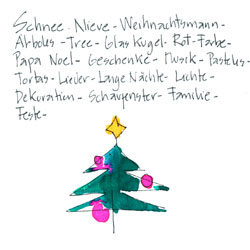 Schnee. Nieve - Weihnachtsmann-
Arboles - Tree - Glas Kugel - Rot - Farbe -
Papa Noel - Geschenke - Musik - Pasteles
Tortas - Lieder - Lange Nächte - Lichte -
Dekoration - Schaufenster - Familie -
Feste -